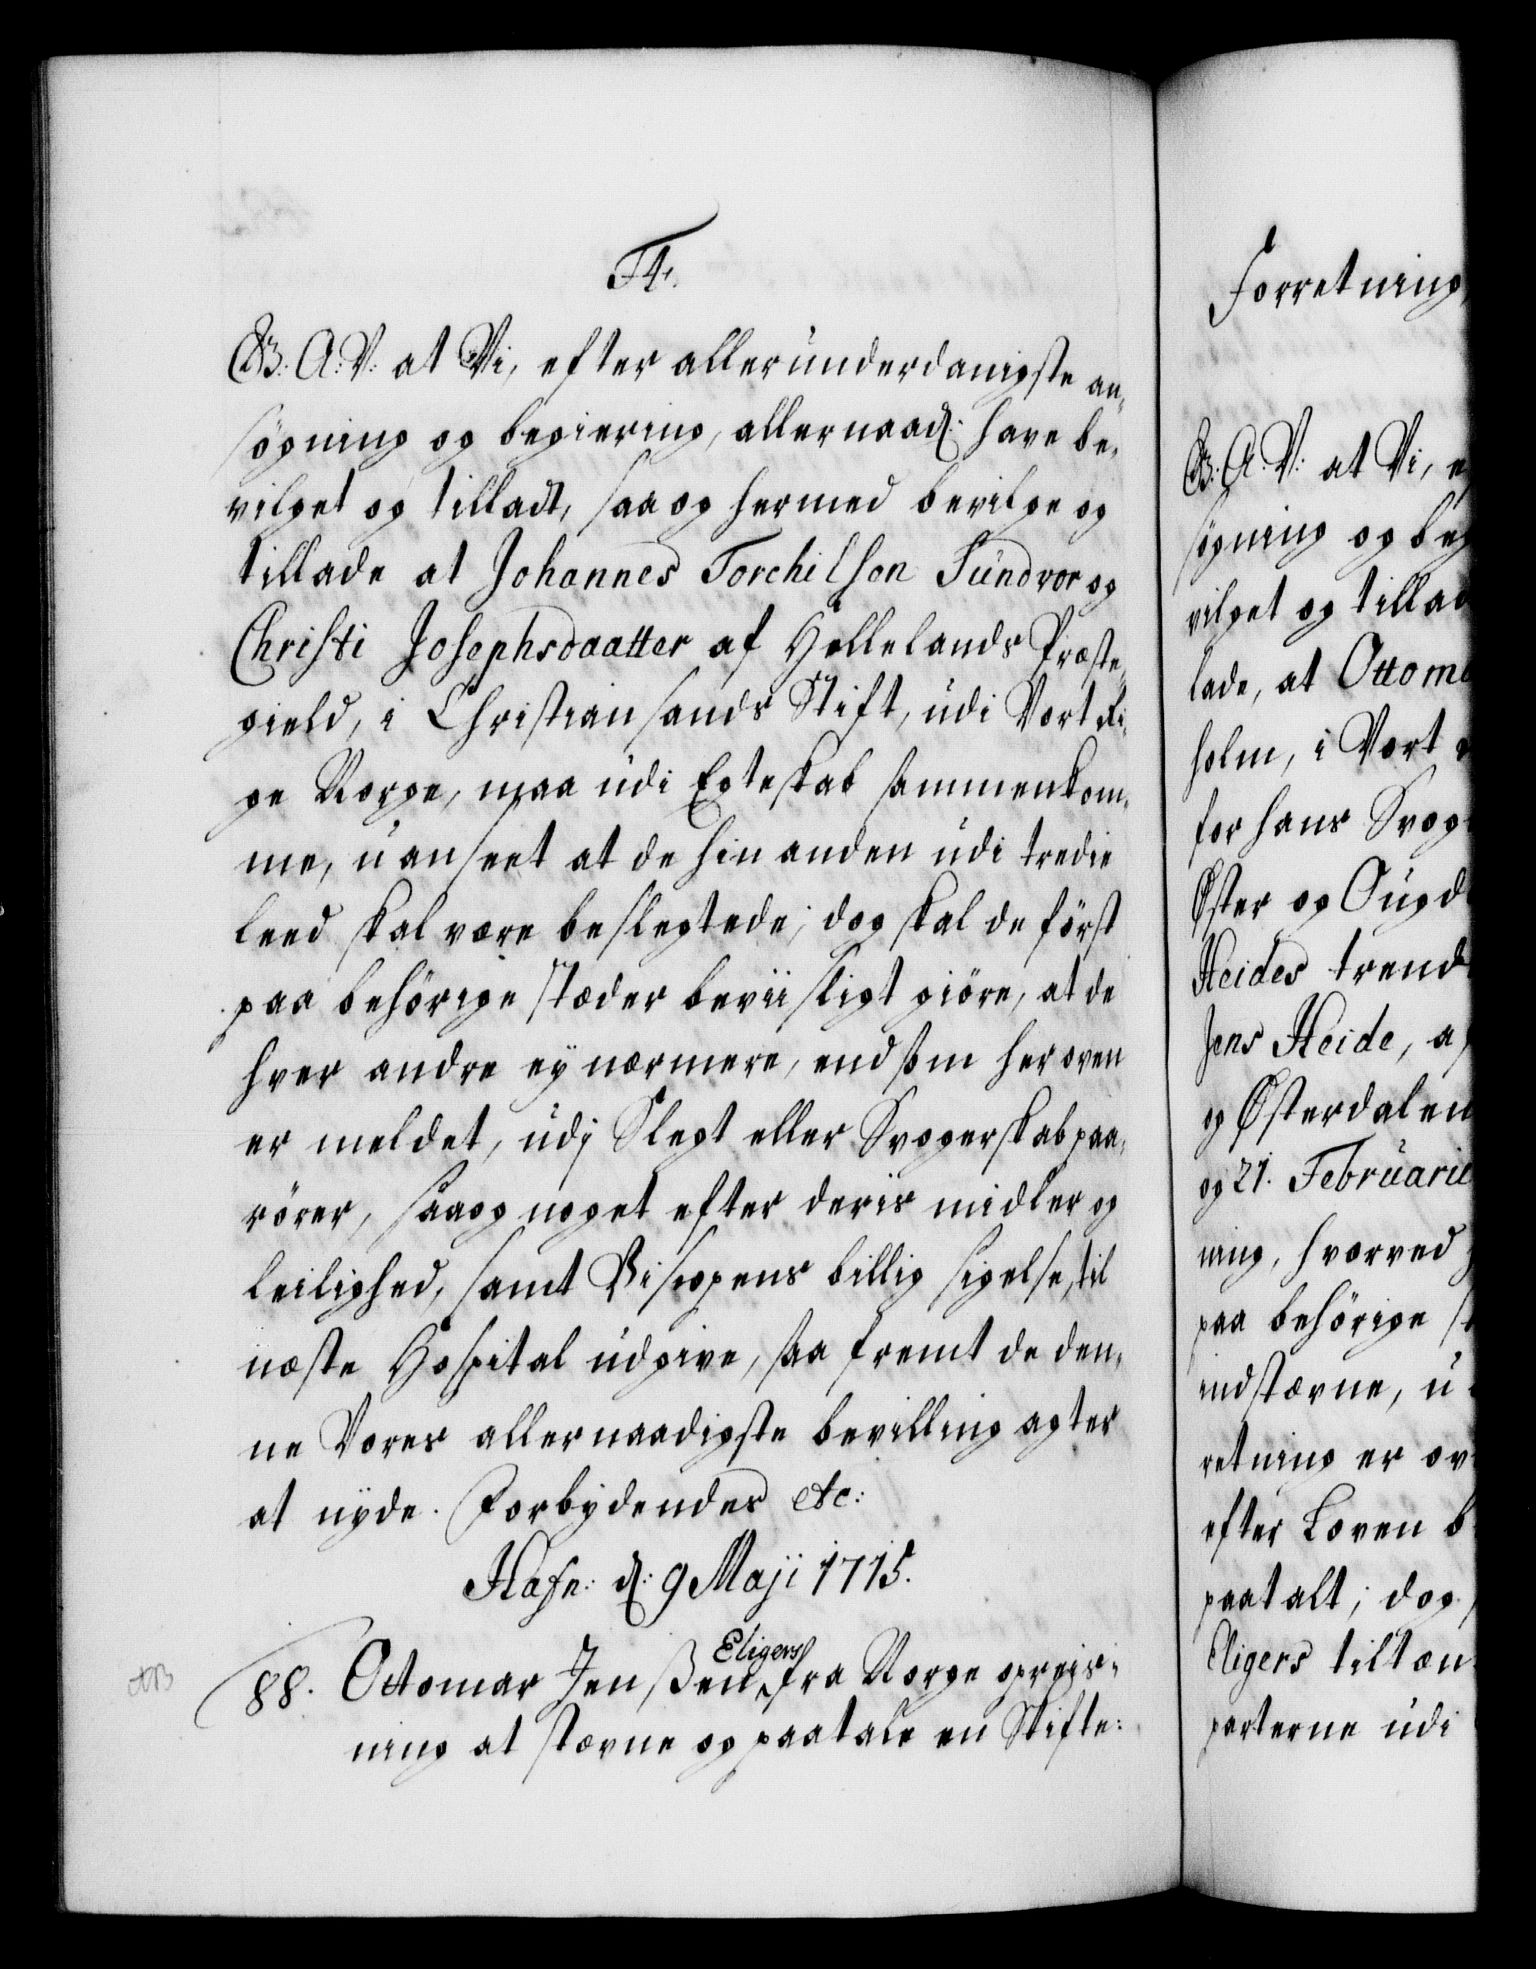 F4.
G. B. A: V: at Vi, efter allerunderdanigste an-
søgning og begiering, allernaad: have be-
vilget og tilladt, saa og hermed bevilge og
tillade at Johannes Torchilson Sundvor og
Christi Josephsdaatter af Hellelands Præste-
gield, i Christiansands Stift, udi Vort Ri-
ge Norge, maa udi Egteskab sammenkom-
me, uanseet at de hinanden udi tredie
leed skal være beslegtede; dog skal de först
paa behörige stæder beviisligt giöre, at de
hver andre ey nærmere, end som her oven
er meldet, udj Slegt eller Svogerskab paa-
rörer, saa og noget efter deris midler og
leilighed, samt Biscopens billig sigelse, til
næste Hospital udgive, saa fremt de den-
ne Vores allernaadigste bevilling agter
at nyde. Forbydendes etc:
Hafn: d: 9 Maji 1715.
88. Ottomar Jenßen Eligers fra Norge opreis-
ning at stævne og paatale en Skifte-
Forretning
B. A. V: at Vi, e
søgning og beg
vilget og tillad
lade, at Ottoma
holm, i Vort
for hans Svog
Øster og Ougd
Heides trend
Jens Heide, a
og Østerdalen
og 21. Februarii
ning, hvorved
paa behörige st
indstævne, u
retning er ov
efter Loven b
paatalt; dog
Eligers tiltæn
parterne udi